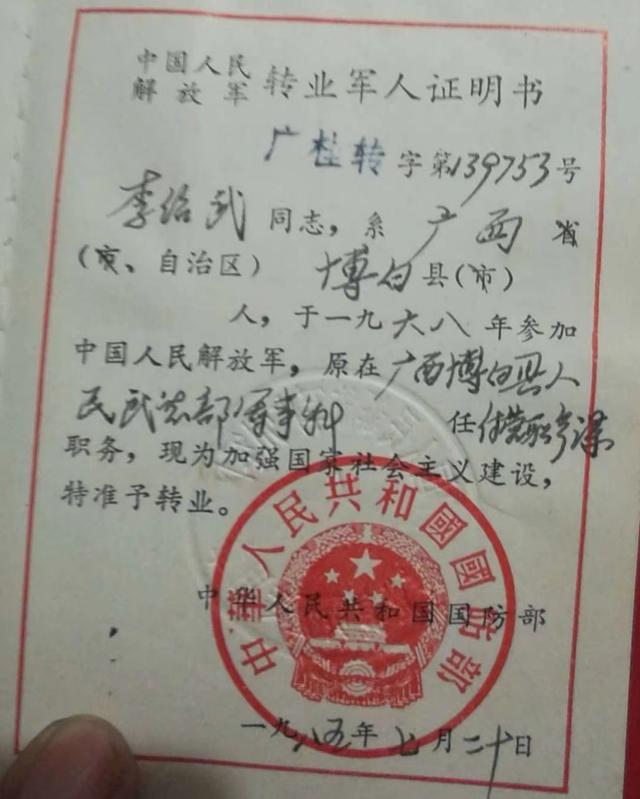 中国人民
解放军 转业军人证明书
广桂转 字第139753号
李绍武 同志,系 广西 省
(市、自治区) 博白 县(市)
人,于一九六八年参加
中国人民解放军,原在广西博白县人
民武装部军事科 任付营职参谋
职务,现为加强国家社会主义建设,
特准予转业。
中华人民共和国国防部
中華人民共和國國防部
一九八五年七月二十日